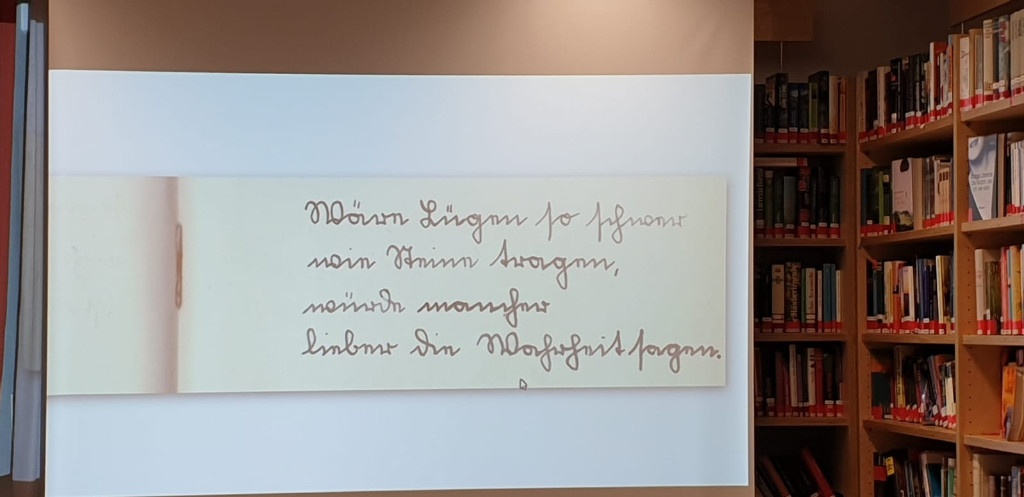 Wäre Lügen so schwer
wie Steine tragen,
würde mancher
lieber die Wahrheit sagen.